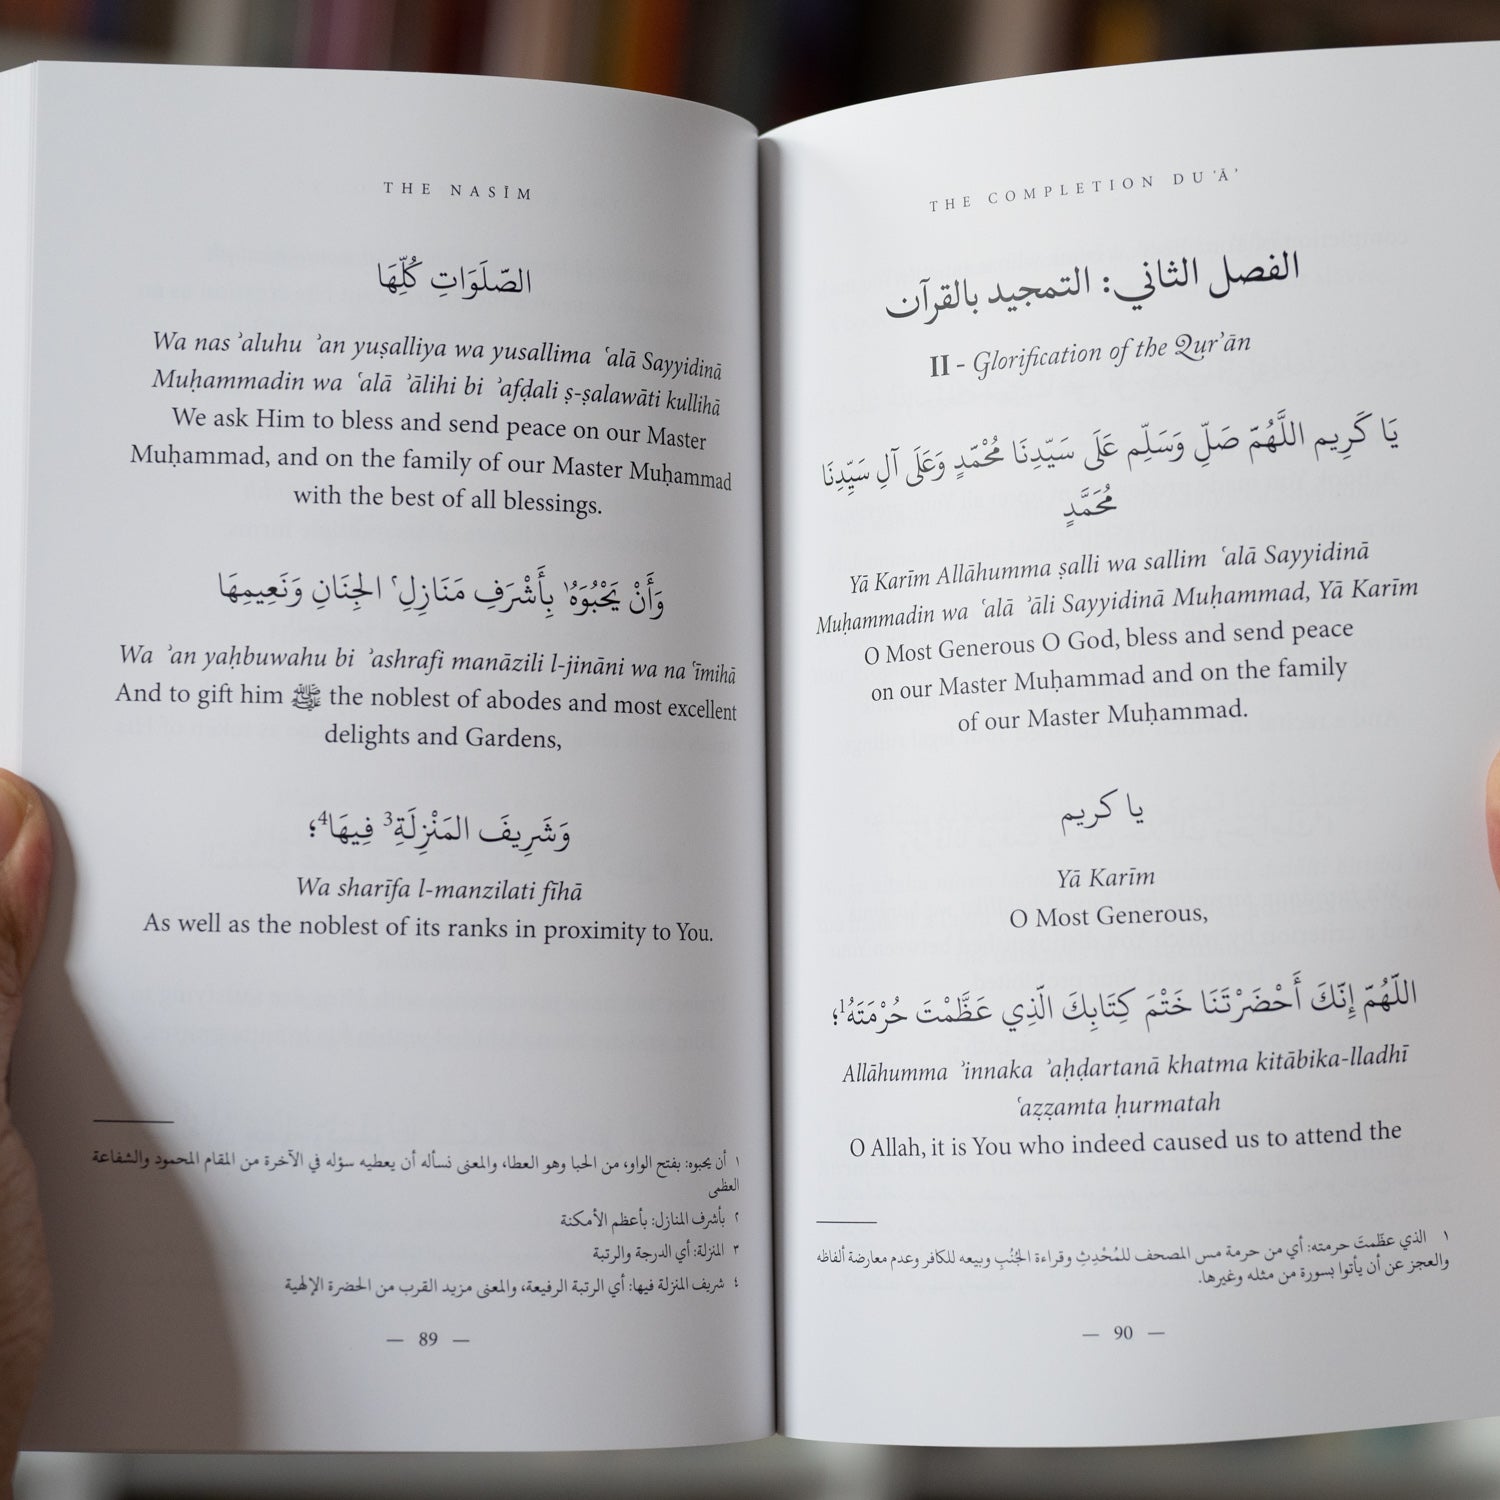 THE NASĪM
الصّلَوَاتِ كُلِّهَا
Wa nas ʾaluhu ʾan yuṣalliya wa yusallima ʿalā Sayyidinā
Muḥammadin wa ʿalā ʾālihi bi ʾafḍali ṣ-ṣalawāti kullihā
We ask Him to bless and send peace on our Master
Muḥammad, and on the family of our Master Muḥammad
with the best of all blessings.
وَأَنْ يَحْبُوَهُ١ بِأَشْرَفِ مَنَازِلِ٢ الجِنَانِ وَنَعِيمِهَا
Wa ʾan yaḥbuwahu bi ʾashrafi manāzili l-jināni wa na ʿīmihā
And to gift him ﷺ the noblest of abodes and most excellent
delights and Gardens,
وَشَرِيفَ المَنْزِلَةِ3 فِيهَا4؛
Wa sharīfa l-manzilati fīhā
As well as the noblest of its ranks in proximity to You.
١ أن يحبوه: بفتح الواو، من الحبا وهو العطا، والمعنى نسأله أن يعطيه سؤله في الآخرة من المقام المحمود والشفاعة
العظمى
٢ بأشرف المنازل: بأعظم الأمكنة
٣ المنزلة: أي الدرجة والرتبة
٤ شريف المنزلة فيها: أي الرتبة الرفيعة، والمعنى مزيد القرب من الحضرة الإلهية
— 89 —
THE COMPLETION DUʿĀʾ
الفصل الثاني: التمجيد بالقرآن
II - Glorification of the Qurʾān
يَا كَرِيم اللَّهُمّ صَلِّ وَسَلِّم عَلَى سَيّدِنَا مُحْمّدٍ وَعَلَى آلِ سَيِّدِنَا
مُحَمَّدٍ
Yā Karīm Allāhumma ṣalli wa sallim ʿalā Sayyidinā
Muḥammadin wa ʿalā ʾāli Sayyidinā Muḥammad, Yā Karīm
O Most Generous O God, bless and send peace
on our Master Muḥammad and on the family
of our Master Muḥammad.
يا كريم
Yā Karīm
O Most Generous,
اللّهُمّ إِنّكَ أَحْضَرْتَنَا خَتْمَ كِتَابِكَ الّذِي عَظَّمْتَ حُرْمَتَهُ1؛
Allāhumma ʾinnaka ʾaḥḍartanā khatma kitābika-lladhī
ʿaẓẓamta ḥurmatah
O Allah, it is You who indeed caused us to attend the
١ الذي عظّمتَ حرمته: أي من حرمة مس المصحف للمُحْدِثِ وقراءة الجُنُبِ وبيعه للكافر وعدم معارضة ألفاظه
والعجز عن أن يأتوا بسورة من مثله وغيرها.
— 90 —